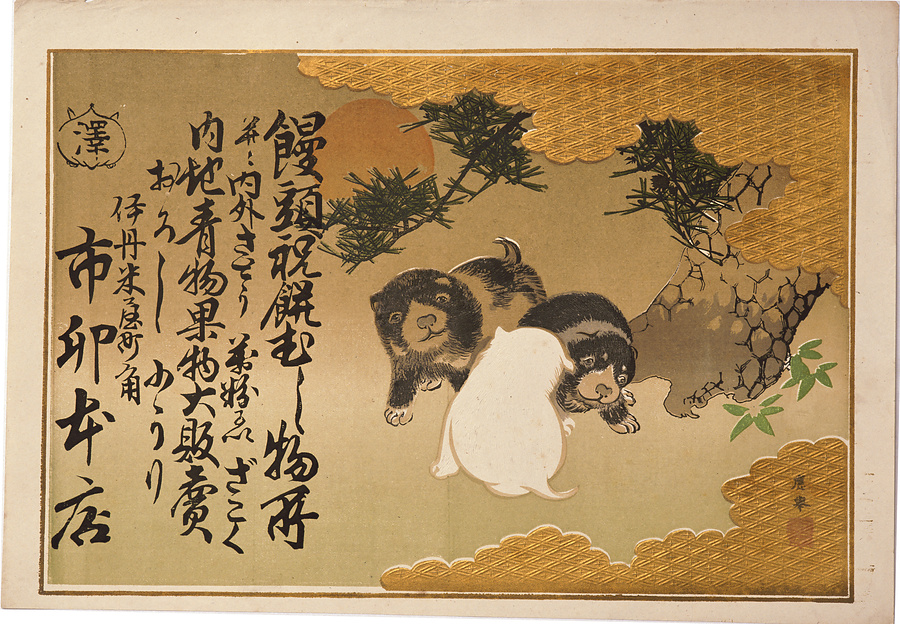 饅頭祝餅むし物所
并ニ内外さとう 藁粉るい ざこく
内地青物果物大販賣
おろし 小うり
伊丹米屋町角
市卯本店
澤